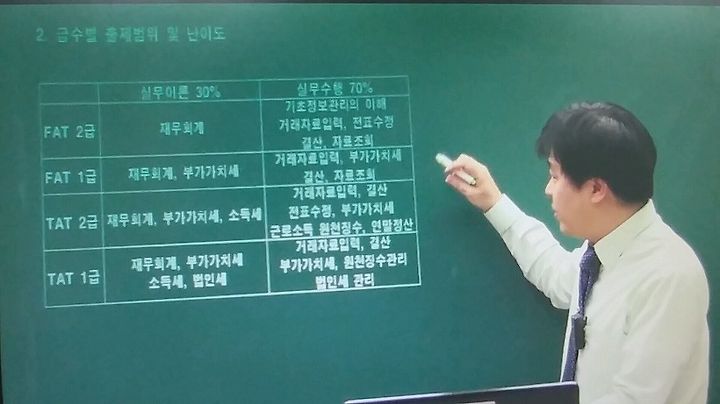 2. 급수별 출제범위 및 난이도
실무이론 30%
실무수행 70%
FAT 2급
재무회계
기초정보관리의 이해
거래자료입력, 전표수정
결산, 자료조회
FAT 1급
재무회계, 부가가치세
거래자료입력, 부가가치세
결산, 자료조회
TAT 2급
재무회계, 부가가치세, 소득세
거래자료입력, 결산
전표수정, 부가가치세
근로소득 원천징수, 연말정산
TAT 1급
재무회계, 부가가치세
소득세, 법인세
거래자료입력, 결산
부가가치세, 원천징수관리
법인세 관리